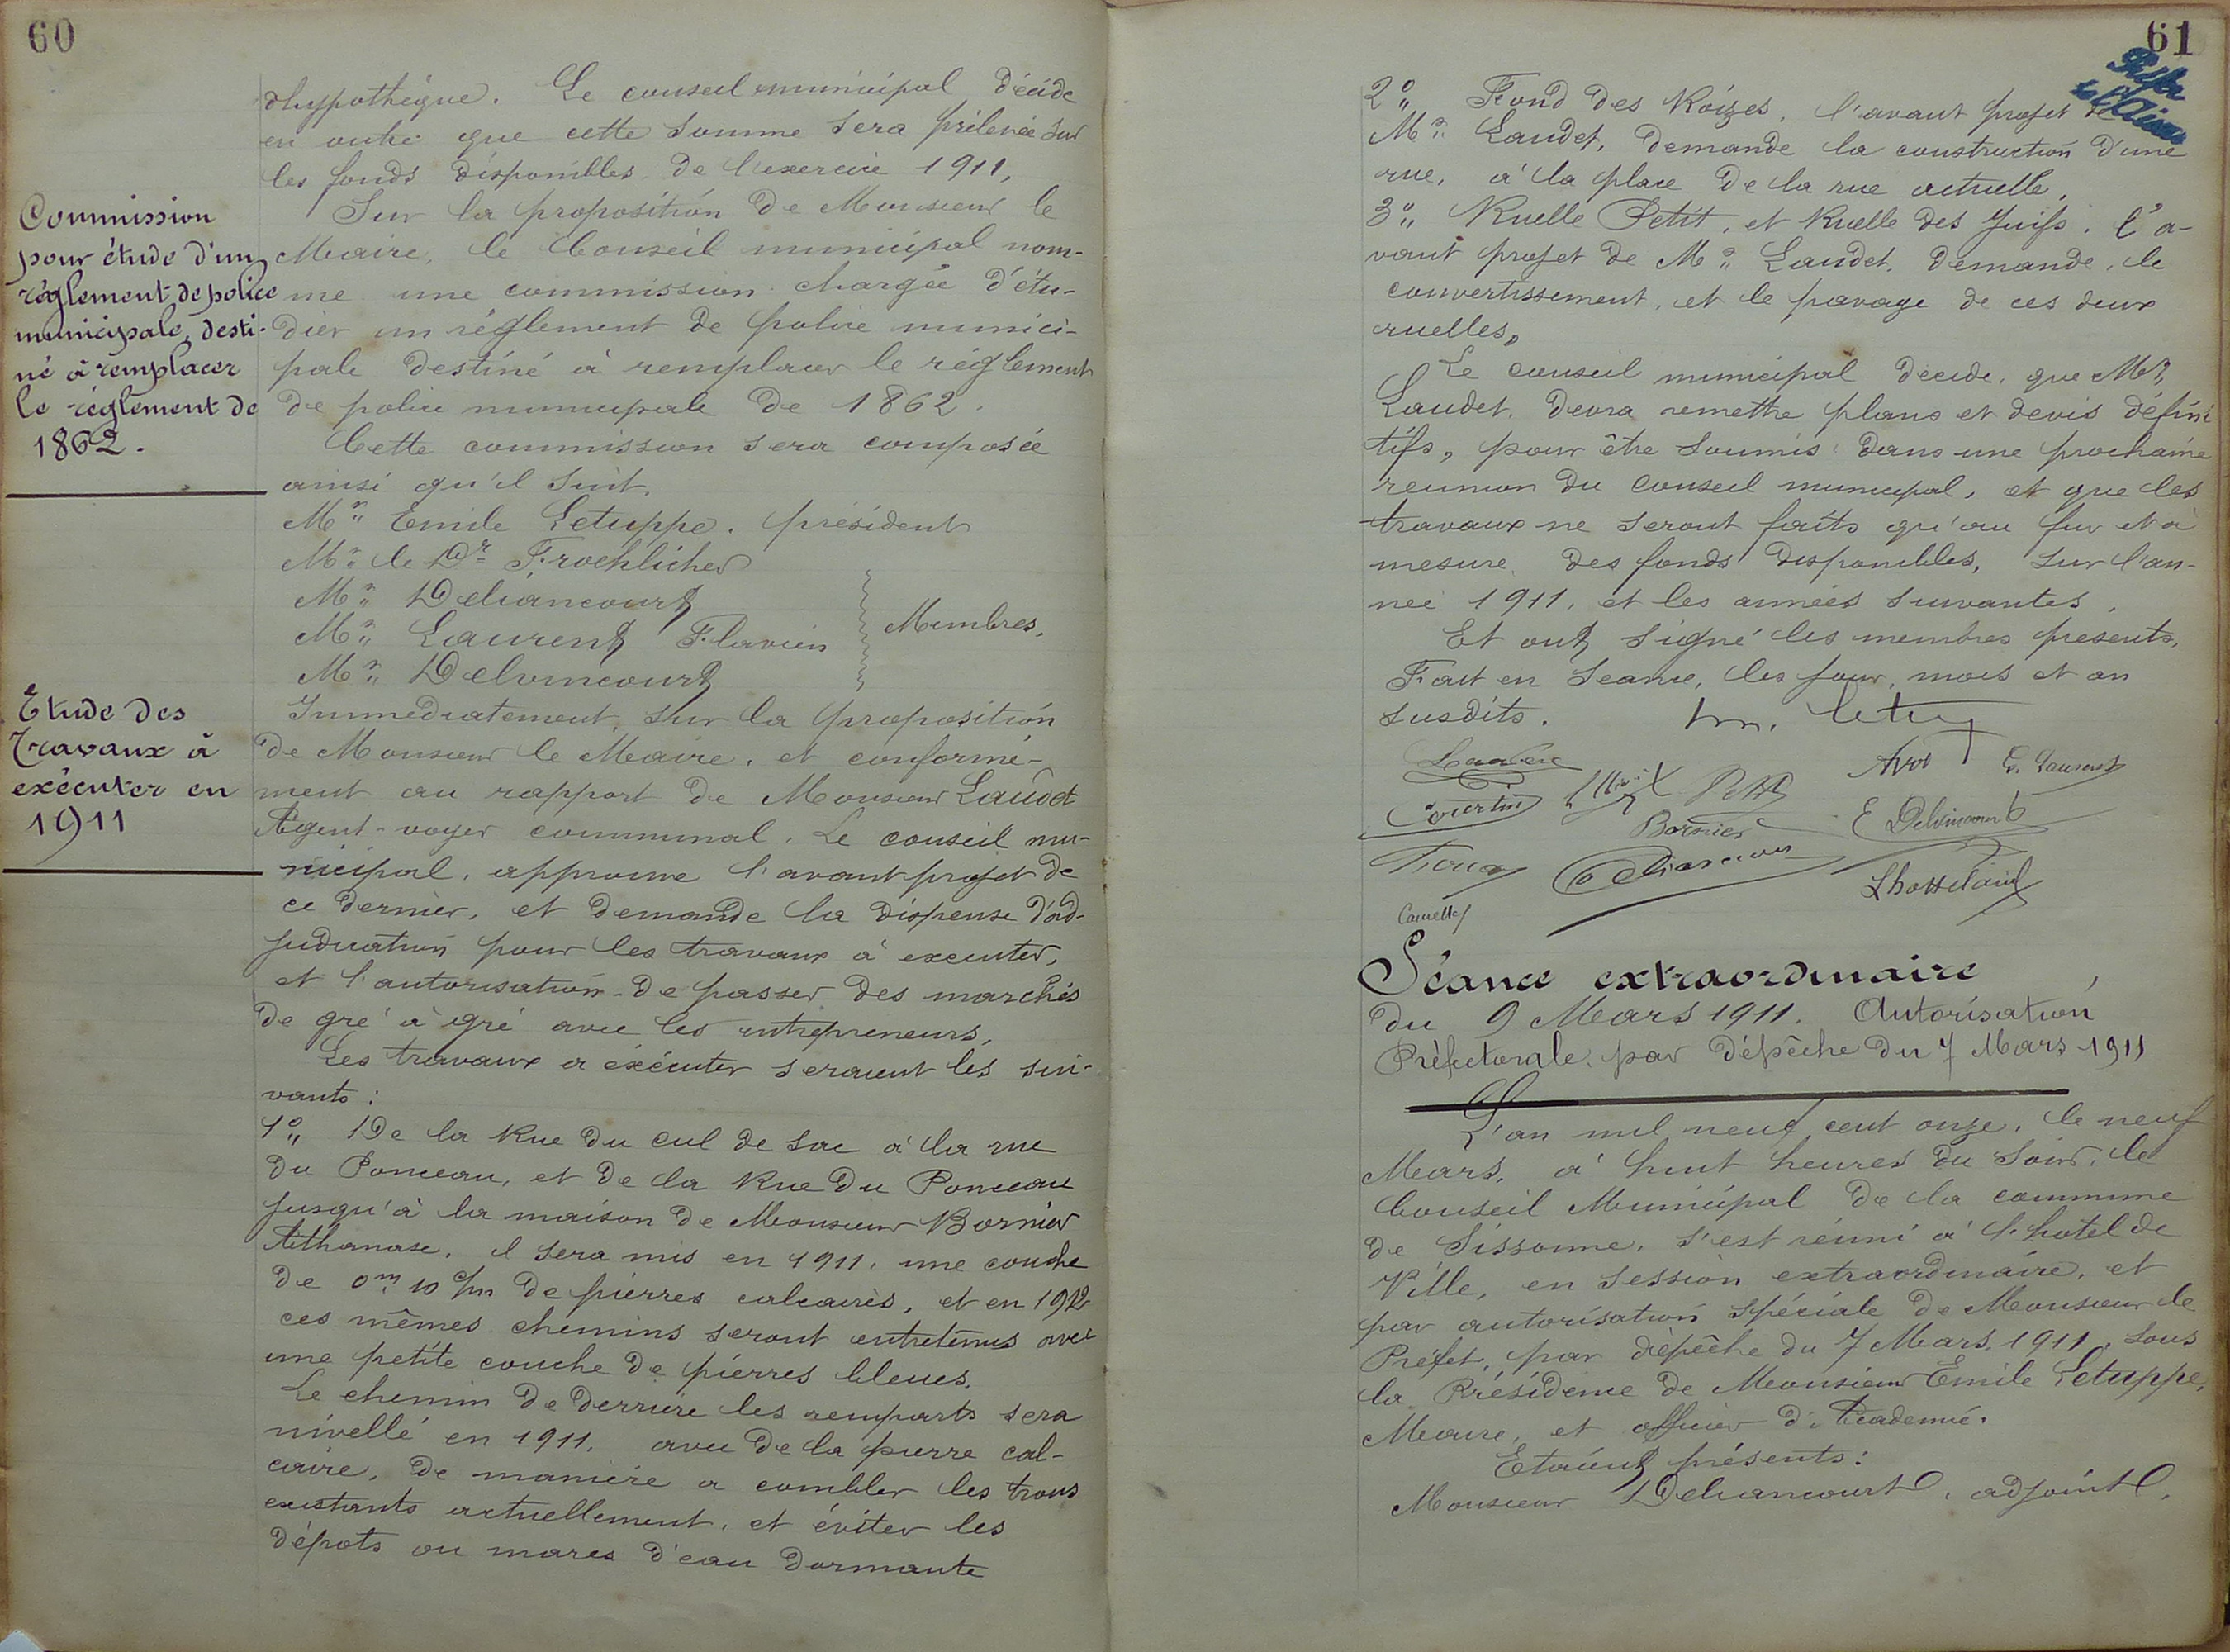 60
d'hypothèque. Le conseil municipal décide
en outre que cette somme sera prélevée sur
les fonds disponibles de l'exercice 1911,
Commission
pour étude d'un
règlement de police
municipale, desti-
né à remplacer
le règlement de
1862.
Sur la proposition de Monsieur le
Maire, le Conseil municipal nom-
me une commission chargée d'étu-
dier un règlement de police munici-
pale destiné à remplacer le règlement
de police municipale de 1862.
Cette commission sera composée
ainsi qu'il suit.
Mr Emile Letuppe. président
Mr le Dr Froehlicher
Mr Deliancourt
Mr Laurent Flavien
Mr Delvincourt
Membres,
Etude des
Travaux à
exécuter en
1911
Immediatement, sur la proposition
de Monsieur le Maire, et conformé-
ment au rapport de Monsieur Laudet
Agent-voyer communal. Le conseil mu-
nicipal, approuve l'avant projet de
ce dernier, et demande la dispense d'ad-
judication pour les travaux à executer,
et l'autorisation de passer des marchés
de gré à gré avec les entrepreneurs,
Les travaux a éxécuter seraient les sui-
vants :
1° De la Rue du cul de sac à la rue
du Ponceau, et de la Rue du Ponceau
jusqu'à la maison de Monsieur Bornier
Athanase, il sera mis en 1911, une couche
de 0m 10 c/m de pierres calcaires, et en 1912
ces mêmes chemins seront entretenus avec
une petite couche de pierres bleues.
Le chemin de derrière les remparts sera
nivellé en 1911, avec de la pierre cal-
caire, de manière a combler les trous
existants actuellement, et éviter les
dépots ou mares d'eau dormante
61
2° Fond des Roizes, l'avant projet de
Mr Laudet, demande la construction d'une
rue, à la place de la rue actuelle,
3° Ruelle Petit, et Ruelle des Juifs. l'a-
vant projet de Mr Laudet, demande, le
convertissement, et le pavage de ces deux
ruelles,
Le conseil municipal decide, que Mr
Laudet, devra remettre plans et devis défini
tifs, pour être soumis dans une prochaine
reunion du conseil municipal, et que les
travaux ne seront faits qu'au fur et à
mesure des fonds disponibles, sur l'an-
née 1911, et les années suivantes,
Et ont signé les membres presents,
Fait en Seance, les jour, mois et an
susdits.
G. Laurent
Petit
Bornier
E Delvincourt
Deliancourt
Lhotellain
Camette
Séance extraordinaire
du 9 Mars 1911. Autorisation
Préfectorale, par dépêche du 7 Mars 1911
L'an mil neuf cent onze, le neuf
Mars, à huit heures du soir, le
Conseil Municipal de la commune
de Sissonne, s'est réuni à l'hotel de
Ville, en session extraordinaire, et
par autorisation spéciale de Monsieur le
Préfet, par dépêche du 7 Mars, 1911, sous
la Présidence de Monsieur Emile Letuppe,
Maire, et officier d'Academie.
Etaient présents :
Monsieur Deliancourt, adjoint,